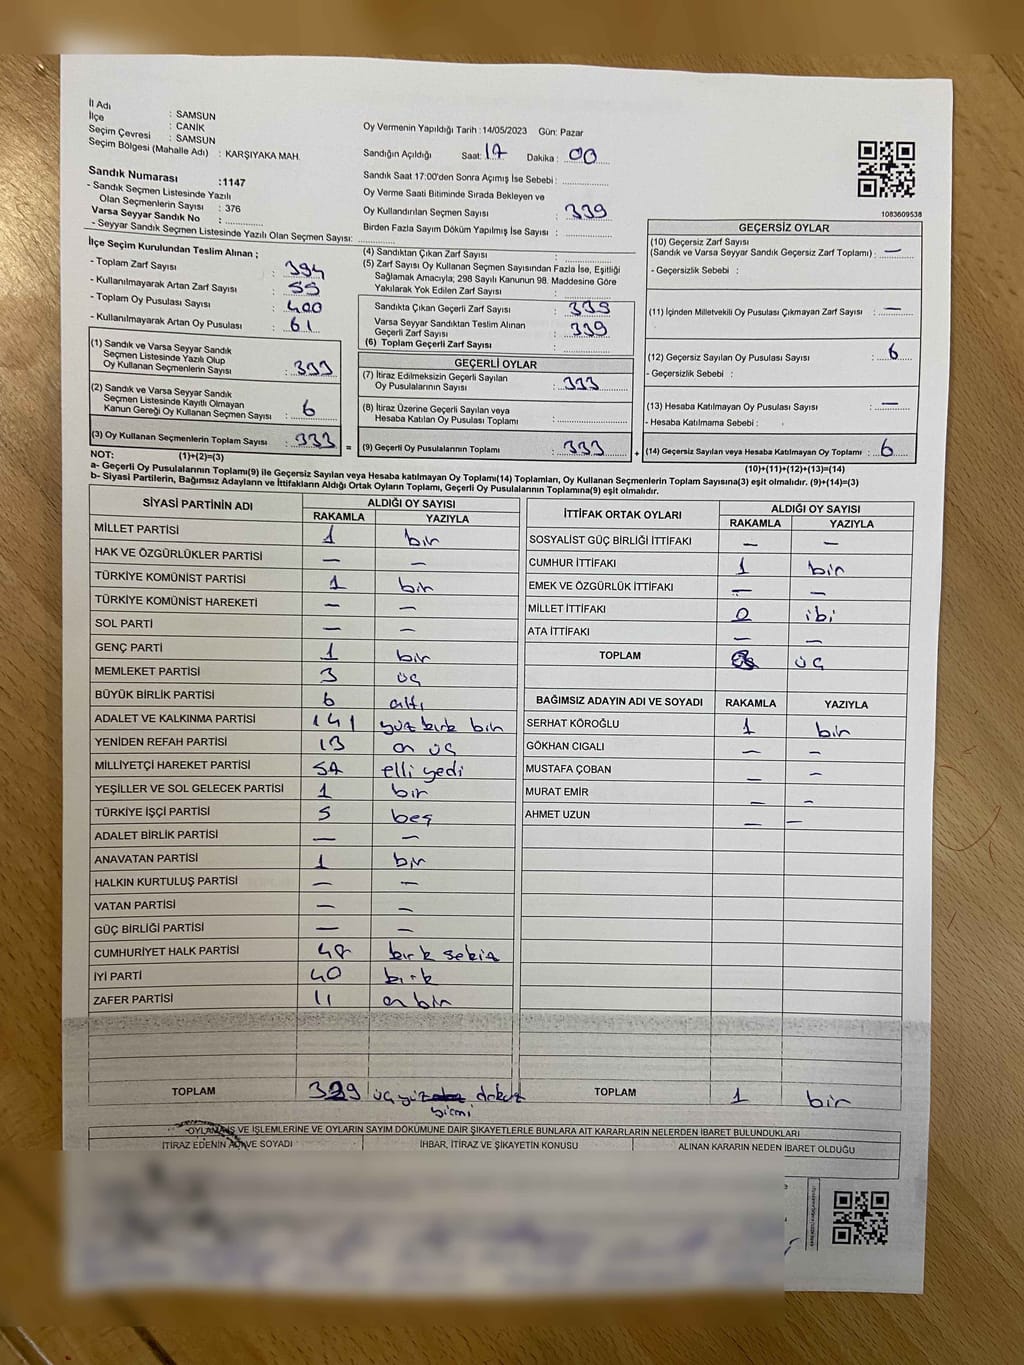 İl Adı : SAMSUN
İlçe : CANİK
Seçim Çevresi : SAMSUN
Seçim Bölgesi (Mahalle Adı) : KARŞIYAKA MAH.
Sandık Numarası :1147
- Sandık Seçmen Listesinde Yazılı
Olan Seçmenlerin Sayısı : 376
Varsa Seyyar Sandık No :
- Seyyar Sandık Seçmen Listesinde Yazılı Olan Seçmen Sayısı:
Oy Vermenin Yapıldığı Tarih : 14/05/2023 Gün: Pazar
Sandığın Açıldığı Saat: 17 Dakika : 00
Sandık Saat 17:00'den Sonra Açımış İse Sebebi :
Oy Verme Saati Bitiminde Sırada Bekleyen ve
Oy Kullandırılan Seçmen Sayısı : 339
Birden Fazla Sayım Döküm Yapılmış İse Sayısı :
1083609538
İlçe Seçim Kurulundan Teslim Alınan ;
- Toplam Zarf Sayısı : 394
- Kullanılmayarak Artan Zarf Sayısı : 55
- Toplam Oy Pusulası Sayısı : 400
- Kullanılmayarak Artan Oy Pusulası : 61
(1) Sandık ve Varsa Seyyar Sandık
Seçmen Listesinde Yazılı Olup
Oy Kullanan Seçmenlerin Sayısı : 333
(2) Sandık ve Varsa Seyyar Sandık
Seçmen Listesinde Kayıtlı Olmayan
Kanun Gereği Oy Kullanan Seçmen Sayısı : 6
(3) Oy Kullanan Seçmenlerin Toplam Sayısı : 333 =
(4) Sandıktan Çıkan Zarf Sayısı :
(5) Zarf Sayısı Oy Kullanan Seçmen Sayısından Fazla İse, Eşitliği
Sağlamak Amacıyla; 298 Sayılı Kanunun 98. Maddesine Göre
Yakılarak Yok Edilen Zarf Sayısı :
Sandıkta Çıkan Geçerli Zarf Sayısı : 339
Varsa Seyyar Sandıktan Teslim Alınan
Geçerli Zarf Sayısı : 339
(6) Toplam Geçerli Zarf Sayısı :
GEÇERLİ OYLAR
(7) İtiraz Edilmeksizin Geçerli Sayılan
Oy Pusulalarının Sayısı : 333
(8) İtiraz Üzerine Geçerli Sayılan veya
Hesaba Katılan Oy Pusulası Toplamı :
(9) Geçerli Oy Pusulalarının Toplamı : 333 +
GEÇERSİZ OYLAR
(10) Geçersiz Zarf Sayısı
(Sandık ve Varsa Seyyar Sandık Geçersiz Zarf Toplamı) : —
- Geçersizlik Sebebi :
(11) İçinden Milletvekili Oy Pusulası Çıkmayan Zarf Sayısı : —
(12) Geçersiz Sayılan Oy Pusulası Sayısı : 6
- Geçersizlik Sebebi :
(13) Hesaba Katılmayan Oy Pusulası Sayısı : —
- Hesaba Katılmama Sebebi :
(14) Geçersiz Sayılan veya Hesaba Katılmayan Oy Toplamı : 6
NOT: (1)+(2)=(3) (10)+(11)+(12)+(13)=(14)
a- Geçerli Oy Pusulalarının Toplamı(9) ile Geçersiz Sayılan veya Hesaba katılmayan Oy Toplam(14) Toplamları, Oy Kullanan Seçmenlerin Toplam Sayısına(3) eşit olmalıdır. (9)+(14)=(3)
b- Siyasi Partilerin, Bağımsız Adayların ve İttifakların Aldığı Ortak Oyların Toplamı, Geçerli Oy Pusulalarının Toplamına(9) eşit olmalıdır.
SİYASİ PARTİNİN ADI ALDIĞI OY SAYISI
RAKAMLA YAZIYLA
MİLLET PARTİSİ 1 bir
HAK VE ÖZGÜRLÜKLER PARTİSİ — —
TÜRKİYE KOMÜNİST PARTİSİ 1 bir
TÜRKİYE KOMÜNİST HAREKETİ — —
SOL PARTİ — —
GENÇ PARTİ 1 bir
MEMLEKET PARTİSİ 3 üç
BÜYÜK BİRLİK PARTİSİ 6 altı
ADALET VE KALKINMA PARTİSİ 141 yüz kırk bir
YENİDEN REFAH PARTİSİ 13 on üç
MİLLİYETÇİ HAREKET PARTİSİ 57 elli yedi
YEŞİLLER VE SOL GELECEK PARTİSİ 1 bir
TÜRKİYE İŞÇİ PARTİSİ 5 beş
ADALET BİRLİK PARTİSİ — —
ANAVATAN PARTİSİ 1 bir
HALKIN KURTULUŞ PARTİSİ — —
VATAN PARTİSİ — —
GÜÇ BİRLİĞİ PARTİSİ — —
CUMHURİYET HALK PARTİSİ 48 kırk sekiz
İYİ PARTİ 40 kırk
ZAFER PARTİSİ 11 on bir
TOPLAM 329 üç yüz dokuz
yirmi
İTTİFAK ORTAK OYLARI ALDIĞI OY SAYISI
RAKAMLA YAZIYLA
SOSYALİST GÜÇ BİRLİĞİ İTTİFAKI — —
CUMHUR İTTİFAKI 1 bir
EMEK VE ÖZGÜRLÜK İTTİFAKI — —
MİLLET İTTİFAKI 2 iki
ATA İTTİFAKI — —
TOPLAM üç
BAĞIMSIZ ADAYIN ADI VE SOYADI RAKAMLA YAZIYLA
SERHAT KÖROĞLU 1 bir
GÖKHAN CIGALI — —
MUSTAFA ÇOBAN — —
MURAT EMİR — —
AHMET UZUN — —
TOPLAM 1 bir
VE İŞLEMLERİNE VE OYLARIN SAYIM DÖKÜMÜNE DAİR ŞİKAYETLERLE BUNLARA AİT KARARLARIN NELERDEN İBARET BULUNDUKLARI
İTİRAZ EDENİN ADI VE SOYADI İHBAR, İTİRAZ VE ŞİKAYETİN KONUSU ALINAN KARARIN NEDEN İBARET OLDUĞU